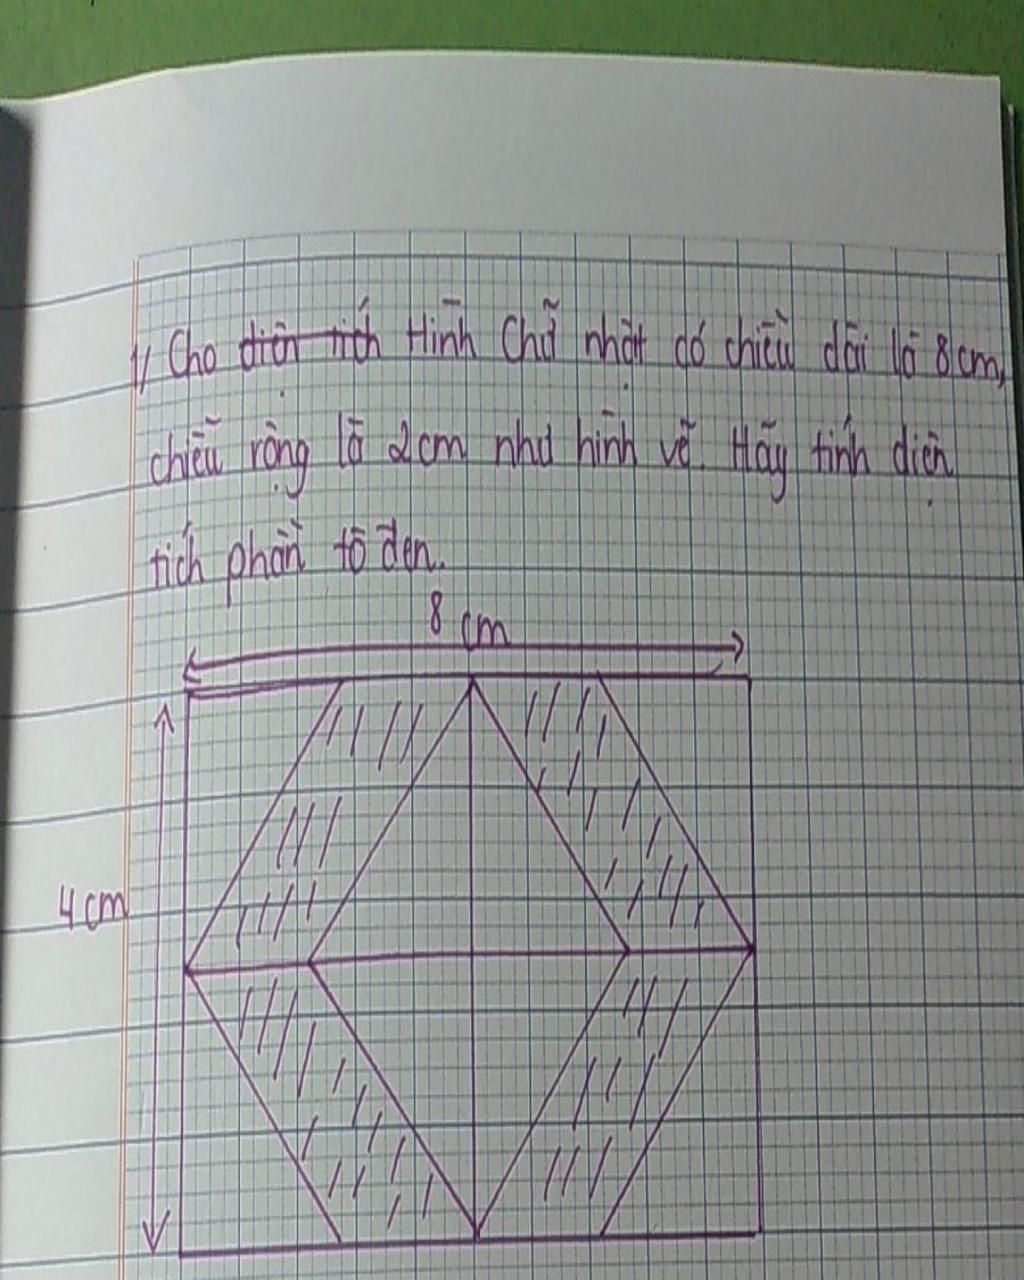 1/ Cho diện tích Hình Chữ nhật có chiều dài là 8cm,
chiều rộng là 2cm như hình vẽ. Hãy tính diện
tích phần tô đen.
8 cm
4cm